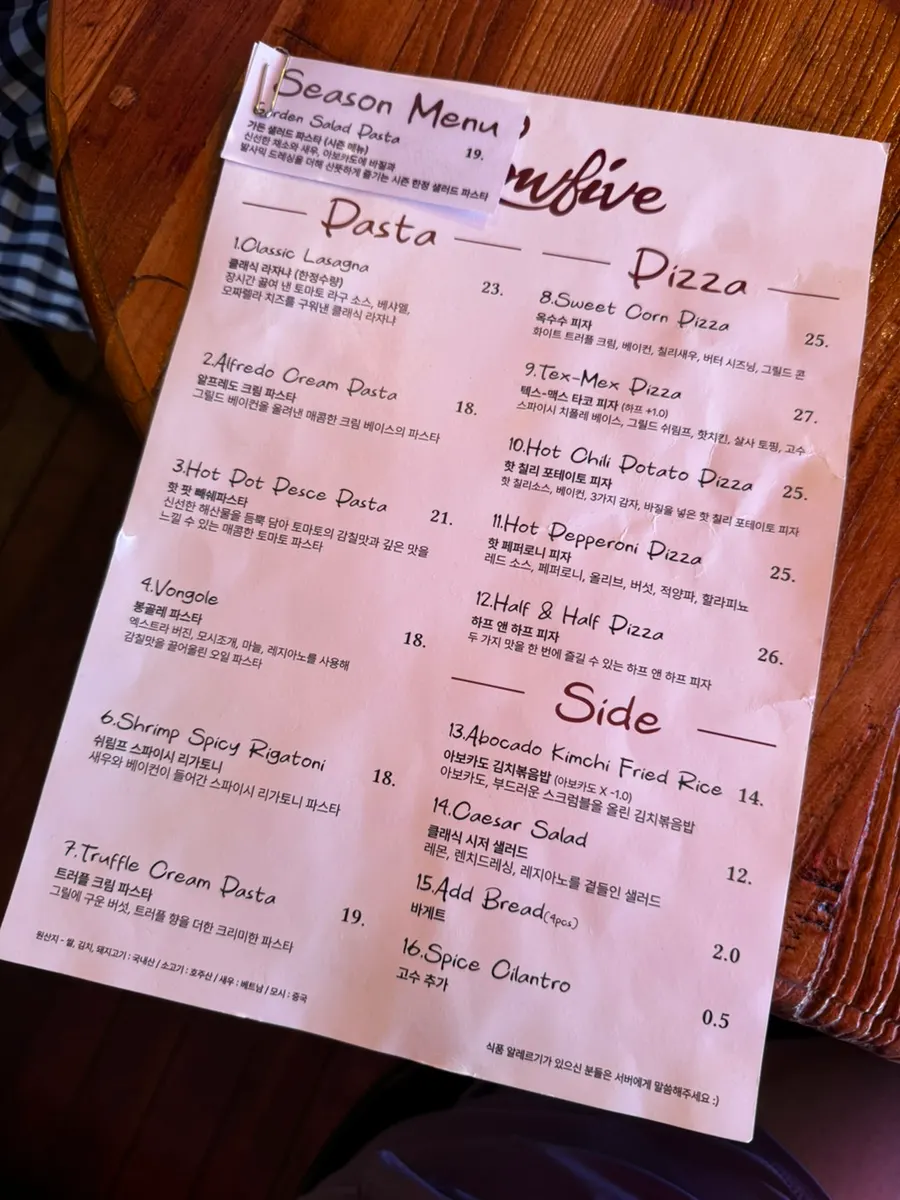 Season Menu
Garden Salad Pasta
가든 샐러드 파스타 (시즌 메뉴)
19.
신선한 채소와 새우, 아보카도에 바질과
발사믹 드레싱을 더해 산뜻하게 즐기는 시즌 한정 샐러드 파스타
Pasta
1.Classic Lasagna
클래식 라자냐 (한정수량)
23.
장시간 끓여 낸 토마토 라구 소스, 베샤멜,
모짜렐라 치즈를 구워낸 클래식 라자냐
2.Alfredo Cream Pasta
알프레도 크림 파스타
18.
그릴드 베이컨을 올려낸 매콤한 크림 베이스의 파스타
3.Hot Pot Pesce Pasta
핫 팟 뻬쉐파스타
21.
신선한 해산물을 듬뿍 담아 토마토의 감칠맛과 깊은 맛을
느낄 수 있는 매콤한 토마토 파스타
4.Vongole
봉골레 파스타
18.
엑스트라 버진, 모시조개, 마늘, 레지아노를 사용해
감칠맛을 끌어올린 오일 파스타
6.Shrimp Spicy Rigatoni
쉬림프 스파이시 리가토니
18.
새우와 베이컨이 들어간 스파이시 리가토니 파스타
7.Truffle Cream Pasta
트러플 크림 파스타
19.
그릴에 구운 버섯, 트러플 향을 더한 크리미한 파스타
원산지 - 쌀, 김치, 돼지고기 : 국내산 / 소고기 : 호주산 / 새우 : 베트남 / 모시 : 중국
Pizza
8.Sweet Corn Pizza
옥수수 피자
25.
화이트 트러플 크림, 베이컨, 칠리새우, 버터 시즈닝, 그릴드 콘
9.Tex-Mex Pizza
텍스-맥스 타코 피자 (하프 +1.0)
27.
스파이시 치폴레 베이스, 그릴드 쉬림프, 핫치킨, 살사 토핑, 고수
10.Hot Chili Potato Pizza
핫 칠리 포테이토 피자
25.
핫 칠리소스, 베이컨, 3가지 감자, 바질을 넣은 핫 칠리 포테이토 피자
11.Hot Pepperoni Pizza
핫 페퍼로니 피자
25.
레드 소스, 페퍼로니, 올리브, 버섯, 적양파, 할라피뇨
12.Half & Half Pizza
하프 앤 하프 피자
26.
두 가지 맛을 한 번에 즐길 수 있는 하프 앤 하프 피자
Side
13.Abocado Kimchi Fried Rice
14.
아보카도 김치볶음밥 (아보카도 X -1.0)
아보카도, 부드러운 스크럼블을 올린 김치볶음밥
14.Caesar Salad
클래식 시저 샐러드
12.
레몬, 렌치드레싱, 레지아노를 곁들인 샐러드
15.Add Bread(4pcs)
바게트
2.0
16.Spice Cilantro
고수 추가
0.5
식품 알레르기가 있으신 분들은 서버에게 말씀해주세요 :)